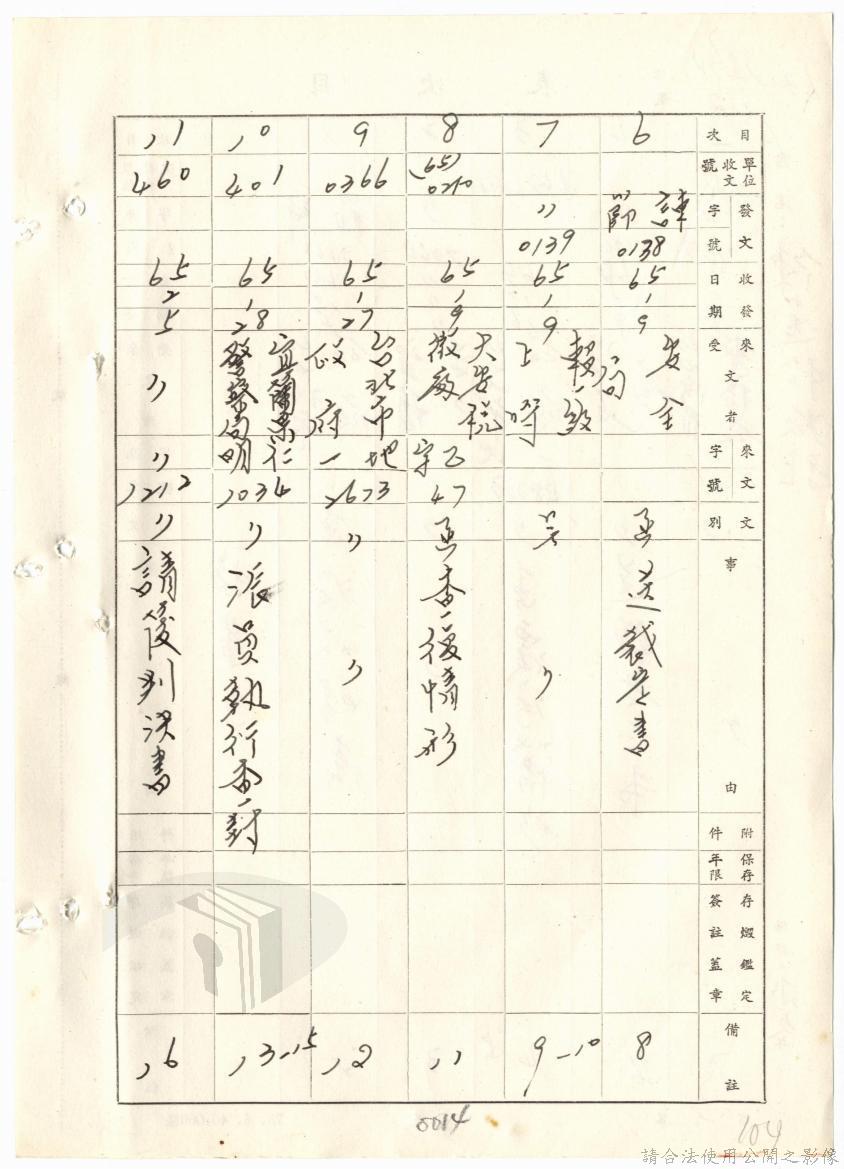 目次
單位收文號
發文字號
收發日期
來文受文者
來文字號
文別
事由
附件
保存年限
存燬鑑定簽註蓋章
備註
6
0138
65
1
9
安全局
函
送裁定書
8
7
〃
0139
65
1
9
〃
9-10
8
(65)
65
1
9
47
函
查復情形
11
9
0366
65
1
27
台北市政府
地一
2673
〃
〃
12
10
401
65
1
28
宜蘭縣警察局
仁明
1034
〃
派員執行查對
13-15
11
460
65
2
5
〃
〃
1212
〃
請復判決書
16
104
請合法使用公開之影像